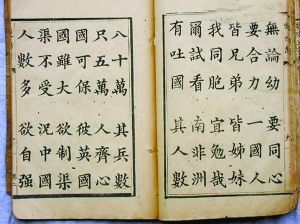 無論幼 要同心
要合力 一國人
皆兄弟 皆姊妹
我同胞 宜勉哉
爾試看 南非洲
有吐國 其人數
八十萬 其兵數
只五萬 人齊心
國可保 彼英國
國雖大 欲制渠
渠不受 況中國
人數多 欲自强